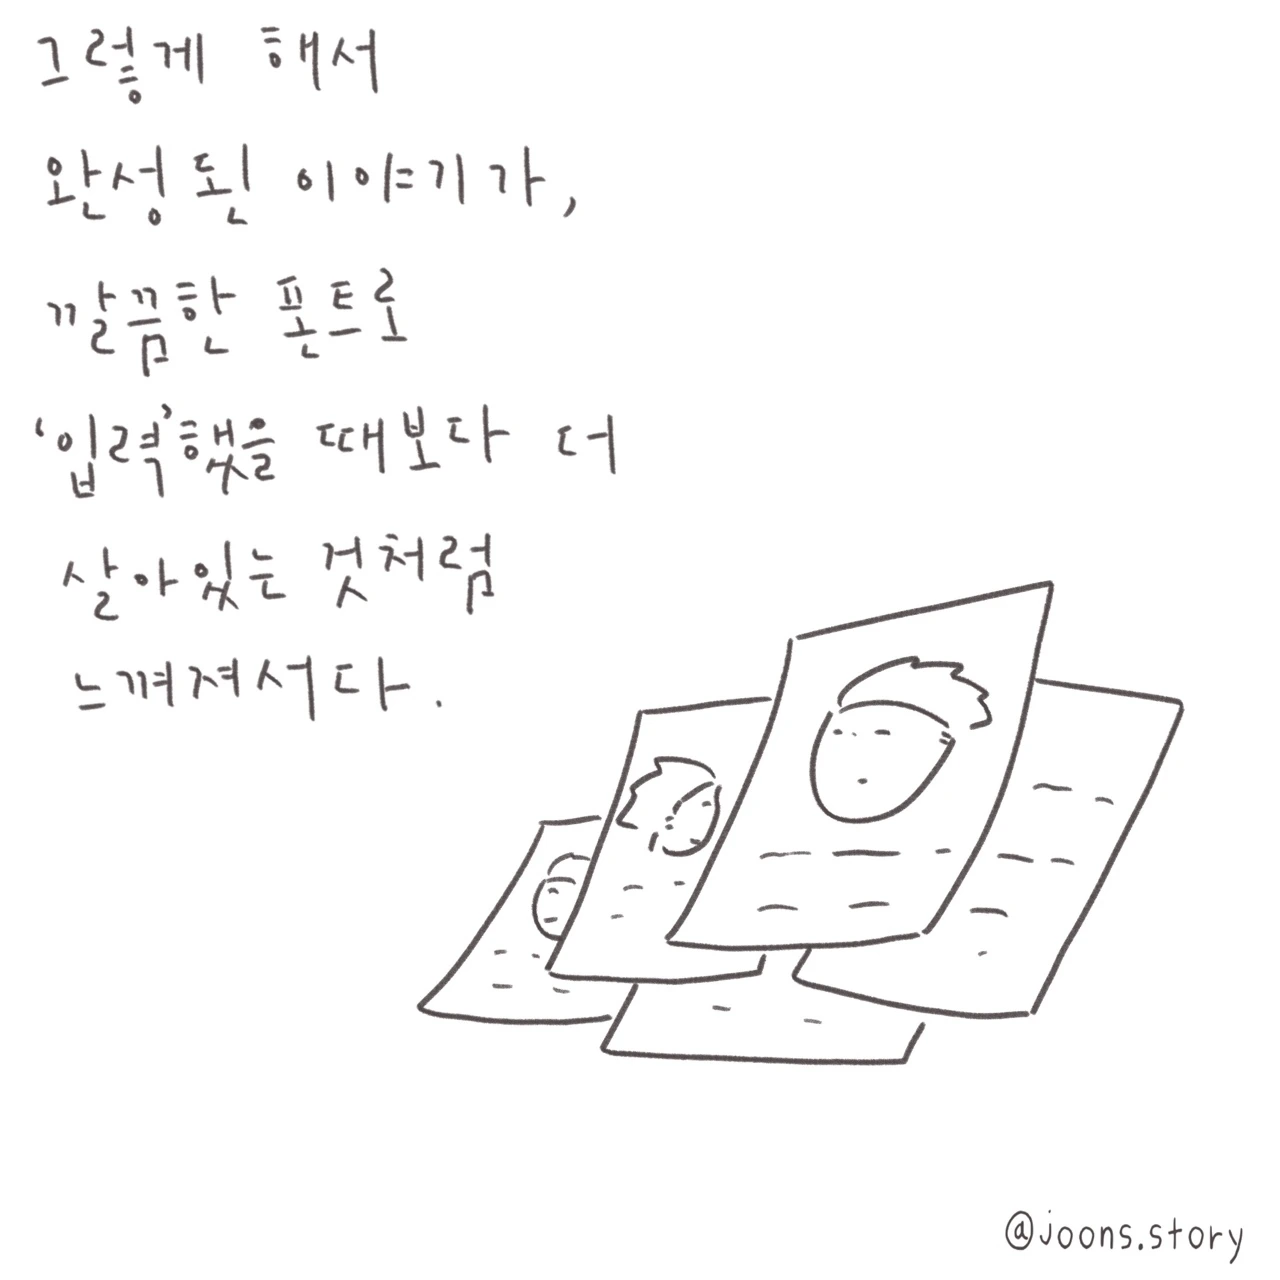 그렇게 해서
완성된 이야기가,
깔끔한 폰트로
'입력'했을 때보다 더
살아있는 것처럼
느껴져서다.
@joons.story